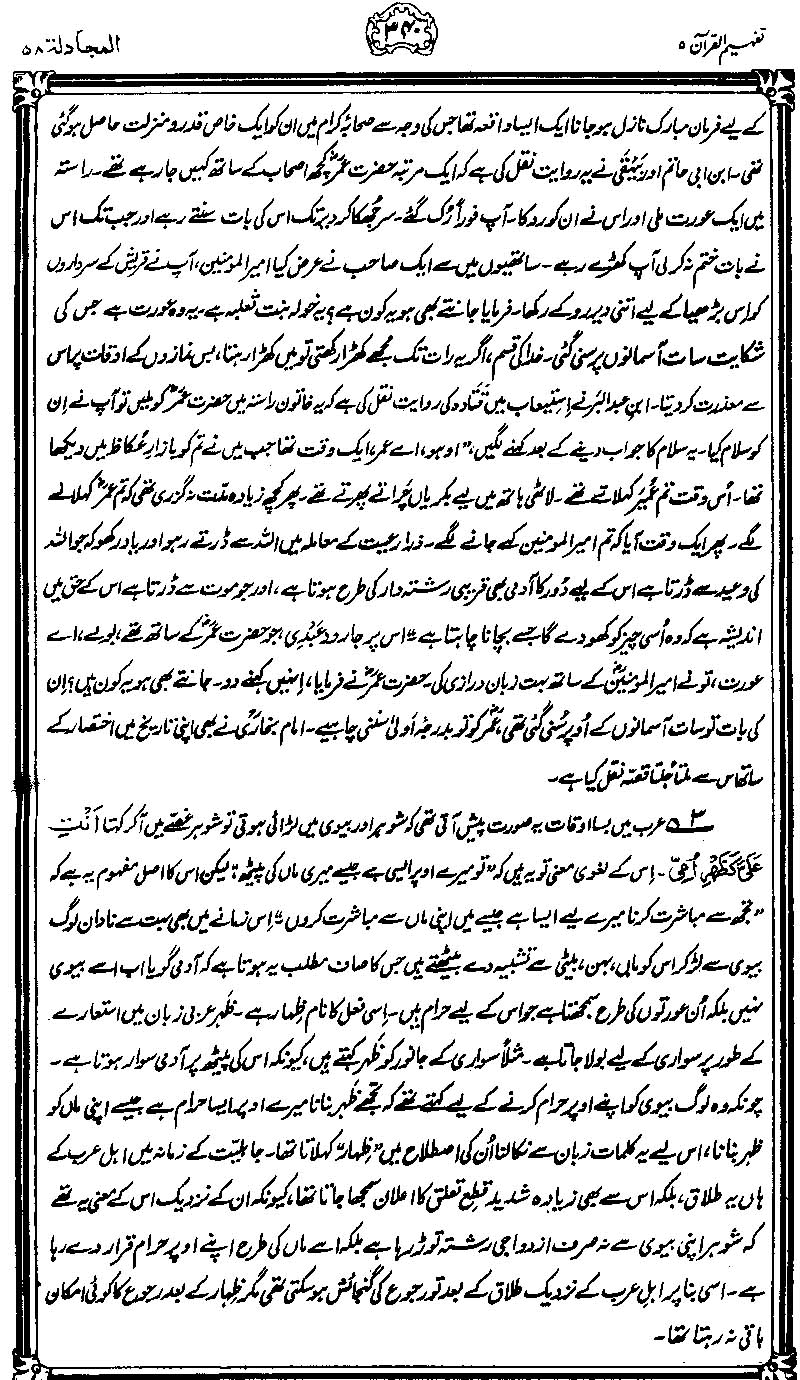 تفہیم القرآن ۵
۳۴۰
المجادلۃ ۵۸
کے لیے فرمان مبارک نازل ہو جانا ایک ایسا واقعہ تھا جس کی وجہ سے صحابۂ کرام میں ان کو ایک خاص قدر و منزلت حاصل ہو گئی
تھی۔ ابن ابی حاتم اور بیہقی نے یہ روایت نقل کی ہے کہ ایک مرتبہ حضرت عمرؓ کچھ اصحاب کے ساتھ کہیں جا رہے تھے۔ راستہ
میں ایک عورت ملی اور اس نے ان کو روکا۔ آپ فوراً رُک گئے۔ سر جُھکا کر دیر تک اس کی بات سنتے رہے اور جب تک اس
نے بات ختم نہ کر لی آپ کھڑے رہے۔ ساتھیوں میں سے ایک صاحب نے عرض کیا امیر المومنین، آپ نے قریش کے سرداروں
کو اس بڑھیا کے لیے اتنی دیر روکے رکھا۔ فرمایا جانتے بھی ہو یہ کون ہے؟ یہ خولہ بنت ثعلبہ ہے۔ یہ وہ عورت ہے جس کی
شکایت سات آسمانوں پر سنی گئی۔ خدا کی قسم، اگر یہ رات تک مجھے کھڑا رکھتی تو میں کھڑا رہتا، بس نمازوں کے اوقات پر اس
سے معذرت کر دیتا۔ ابن عبدالبر نے اِستیعاب میں قَتَادہ کی روایت نقل کی ہے کہ یہ خاتون راستہ میں حضرت عمرؓ کو ملیں تو آپ نے اِن
کو سلام کیا۔ یہ سلام کا جواب دینے کے بعد کہنے لگیں، ”اوہو، اے عمر، ایک وقت تھا جب میں نے تم کو بازارِ عُکاظ میں دیکھا
تھا۔ اُس وقت تم عُمَیر کہلاتے تھے۔ لاٹھی ہاتھ میں لیے بکریاں چَراتے پھرتے تھے۔ پھر کچھ زیادہ مدّت نہ گزری تھی کہ تم عمرؓ کہلانے
لگے۔ پھر ایک وقت آیا کہ تم امیر المومنین کہے جانے لگے۔ ذرا رعیت کے معاملہ میں اللہ سے ڈرتے رہو اور یاد رکھو کہ جو اللہ
کی وعید سے ڈرتا ہے اس کے لیے دُور کا آدمی بھی قریبی رشتہ دار کی طرح ہوتا ہے، اور جو موت سے ڈرتا ہے اس کے حق میں
اندیشہ ہے کہ وہ اُسی چیز کو کھو دے گا جسے بچانا چاہتا ہے“ اس پر جارود عَبْدِی، جو حضرت عمرؓ کے ساتھ تھے، بولے، اے
عورت، تو نے امیر المومنینؓ کے ساتھ بہت زبان درازی کی۔ حضرت عمرؓ نے فرمایا، اِنہیں کہنے دو۔ جانتے بھی ہو یہ کون ہیں؟ اِن
کی بات تو سات آسمانوں کے اُوپر سُنی گئی تھی، عمرؓ کو تو بدرجۂ اَولیٰ سننی چاہیے۔ امام بخاریؒ نے بھی اپنی تاریخ میں اختصار کے
ساتھ اس سے ملتا جُلتا قصّہ نقل کیا ہے۔
۳؎ عرب میں بسا اوقات یہ صورت پیش آتی تھی کہ شوہر اور بیوی میں لڑائی ہوتی تو شوہر غصّے میں آ کر کہتا اَنْتِ
عَلَیَّ کَظَھْرِ اُمِّیْ۔ اِس کے لغوی معنی تو یہ ہیں کہ ”تو میرے اوپر ایسی ہے جیسے میری ماں کی پیٹھ“؛ لیکن اس کا اصل مفہوم یہ ہے کہ
”تجھ سے مباشرت کرنا میرے لیے ایسا ہے جیسے میں اپنی ماں سے مباشرت کروں“ اِس زمانے میں بھی بہت سے نادان لوگ
بیوی سے لڑ کر اس کو ماں، بہن، بیٹی سے تشبیہ دے بیٹھتے ہیں جس کا صاف مطلب یہ ہوتا ہے کہ آدمی گویا اب اسے بیوی
نہیں بلکہ اُن عورتوں کی طرح سمجھتا ہے جو اس کے لیے حرام ہیں۔ اِسی فعل کا نام ظِہار ہے۔ ظَہر عربی زبان میں استعارے
کے طور پر سواری کے لیے بولا جاتا ہے۔ مثلاً سواری کے جانور کو ظَہر کہتے ہیں، کیونکہ اس کی پیٹھ پر آدمی سوار ہوتا ہے۔
چونکہ وہ لوگ بیوی کو اپنے اوپر حرام کرنے کے لیے کہتے تھے کہ تجھے ظَہر بنانا میرے اوپر ایسا حرام ہے جیسے اپنی ماں کو
ظَہر بنانا، اس لیے یہ کلمات زبان سے نکالنا اُن کی اصطلاح میں ”ظِہار“ کہلاتا تھا۔ جاہلیّت کے زمانہ میں اہل عرب کے
ہاں یہ طلاق، بلکہ اس سے بھی زیادہ شدید قطعِ تعلق کا اعلان سمجھا جاتا تھا، کیونکہ ان کے نزدیک اس کے معنی یہ تھے
کہ شوہر اپنی بیوی سے نہ صرف ازدواجی رشتہ توڑ رہا ہے بلکہ اسے ماں کی طرح اپنے اوپر حرام قرار دے رہا
ہے۔ اسی بنا پر اہل عرب کے نزدیک طلاق کے بعد تو رجوع کی گنجائش ہو سکتی تھی مگر ظِہار کے بعد رجوع کا کوئی امکان
باقی نہ رہتا تھا۔